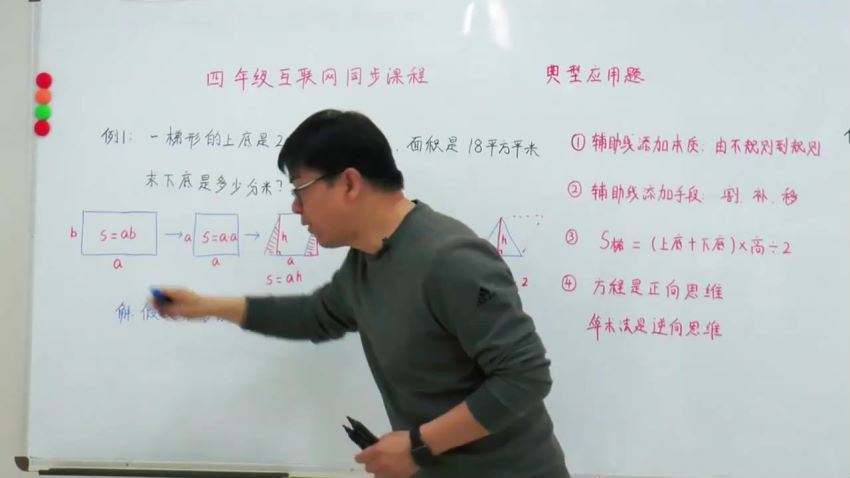 四年级互联网同步课程
典型应用题
例1: 一梯形的上底是2
面积是18平方平米
求下底是多少分米?
b S=ab a
a S=a·a a
h a S=ah
2
解 假
① 辅助线添加本质: 由不规则到规则
② 辅助线添加手段: 割、补、移
③ S梯=(上底+下底)×高÷2
④ 方程是正向思维
算术法是逆向思维